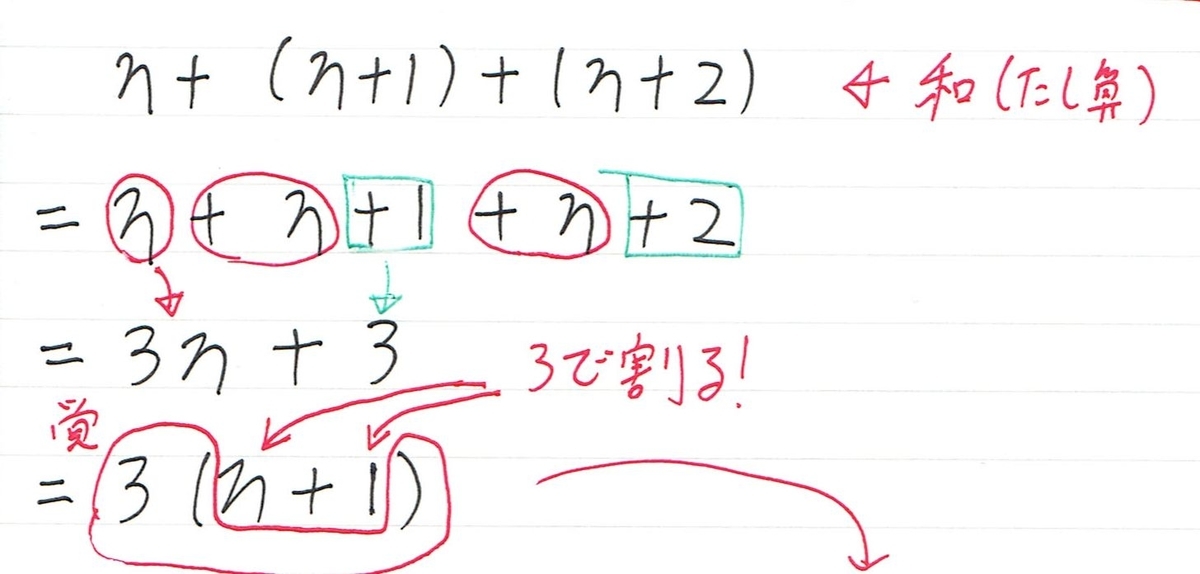 n + (n+1) + (n+2) ← 和(たし算)
= n + n +1 + n +2
= 3n + 3 3で割る!
覚
= 3(n+1)